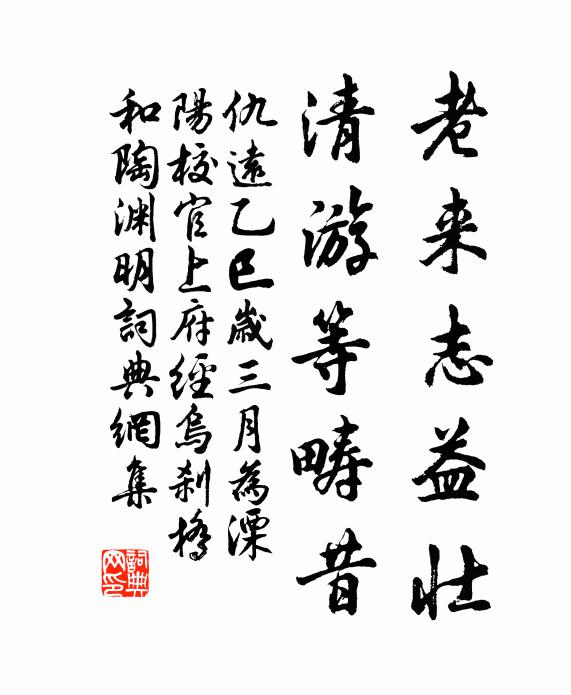 老来志益壮
清游等畴昔
仇遠乙巳歲三月為溧
陽校官上府經烏刹橋
和陶渊明詞典網集
詞典
网印